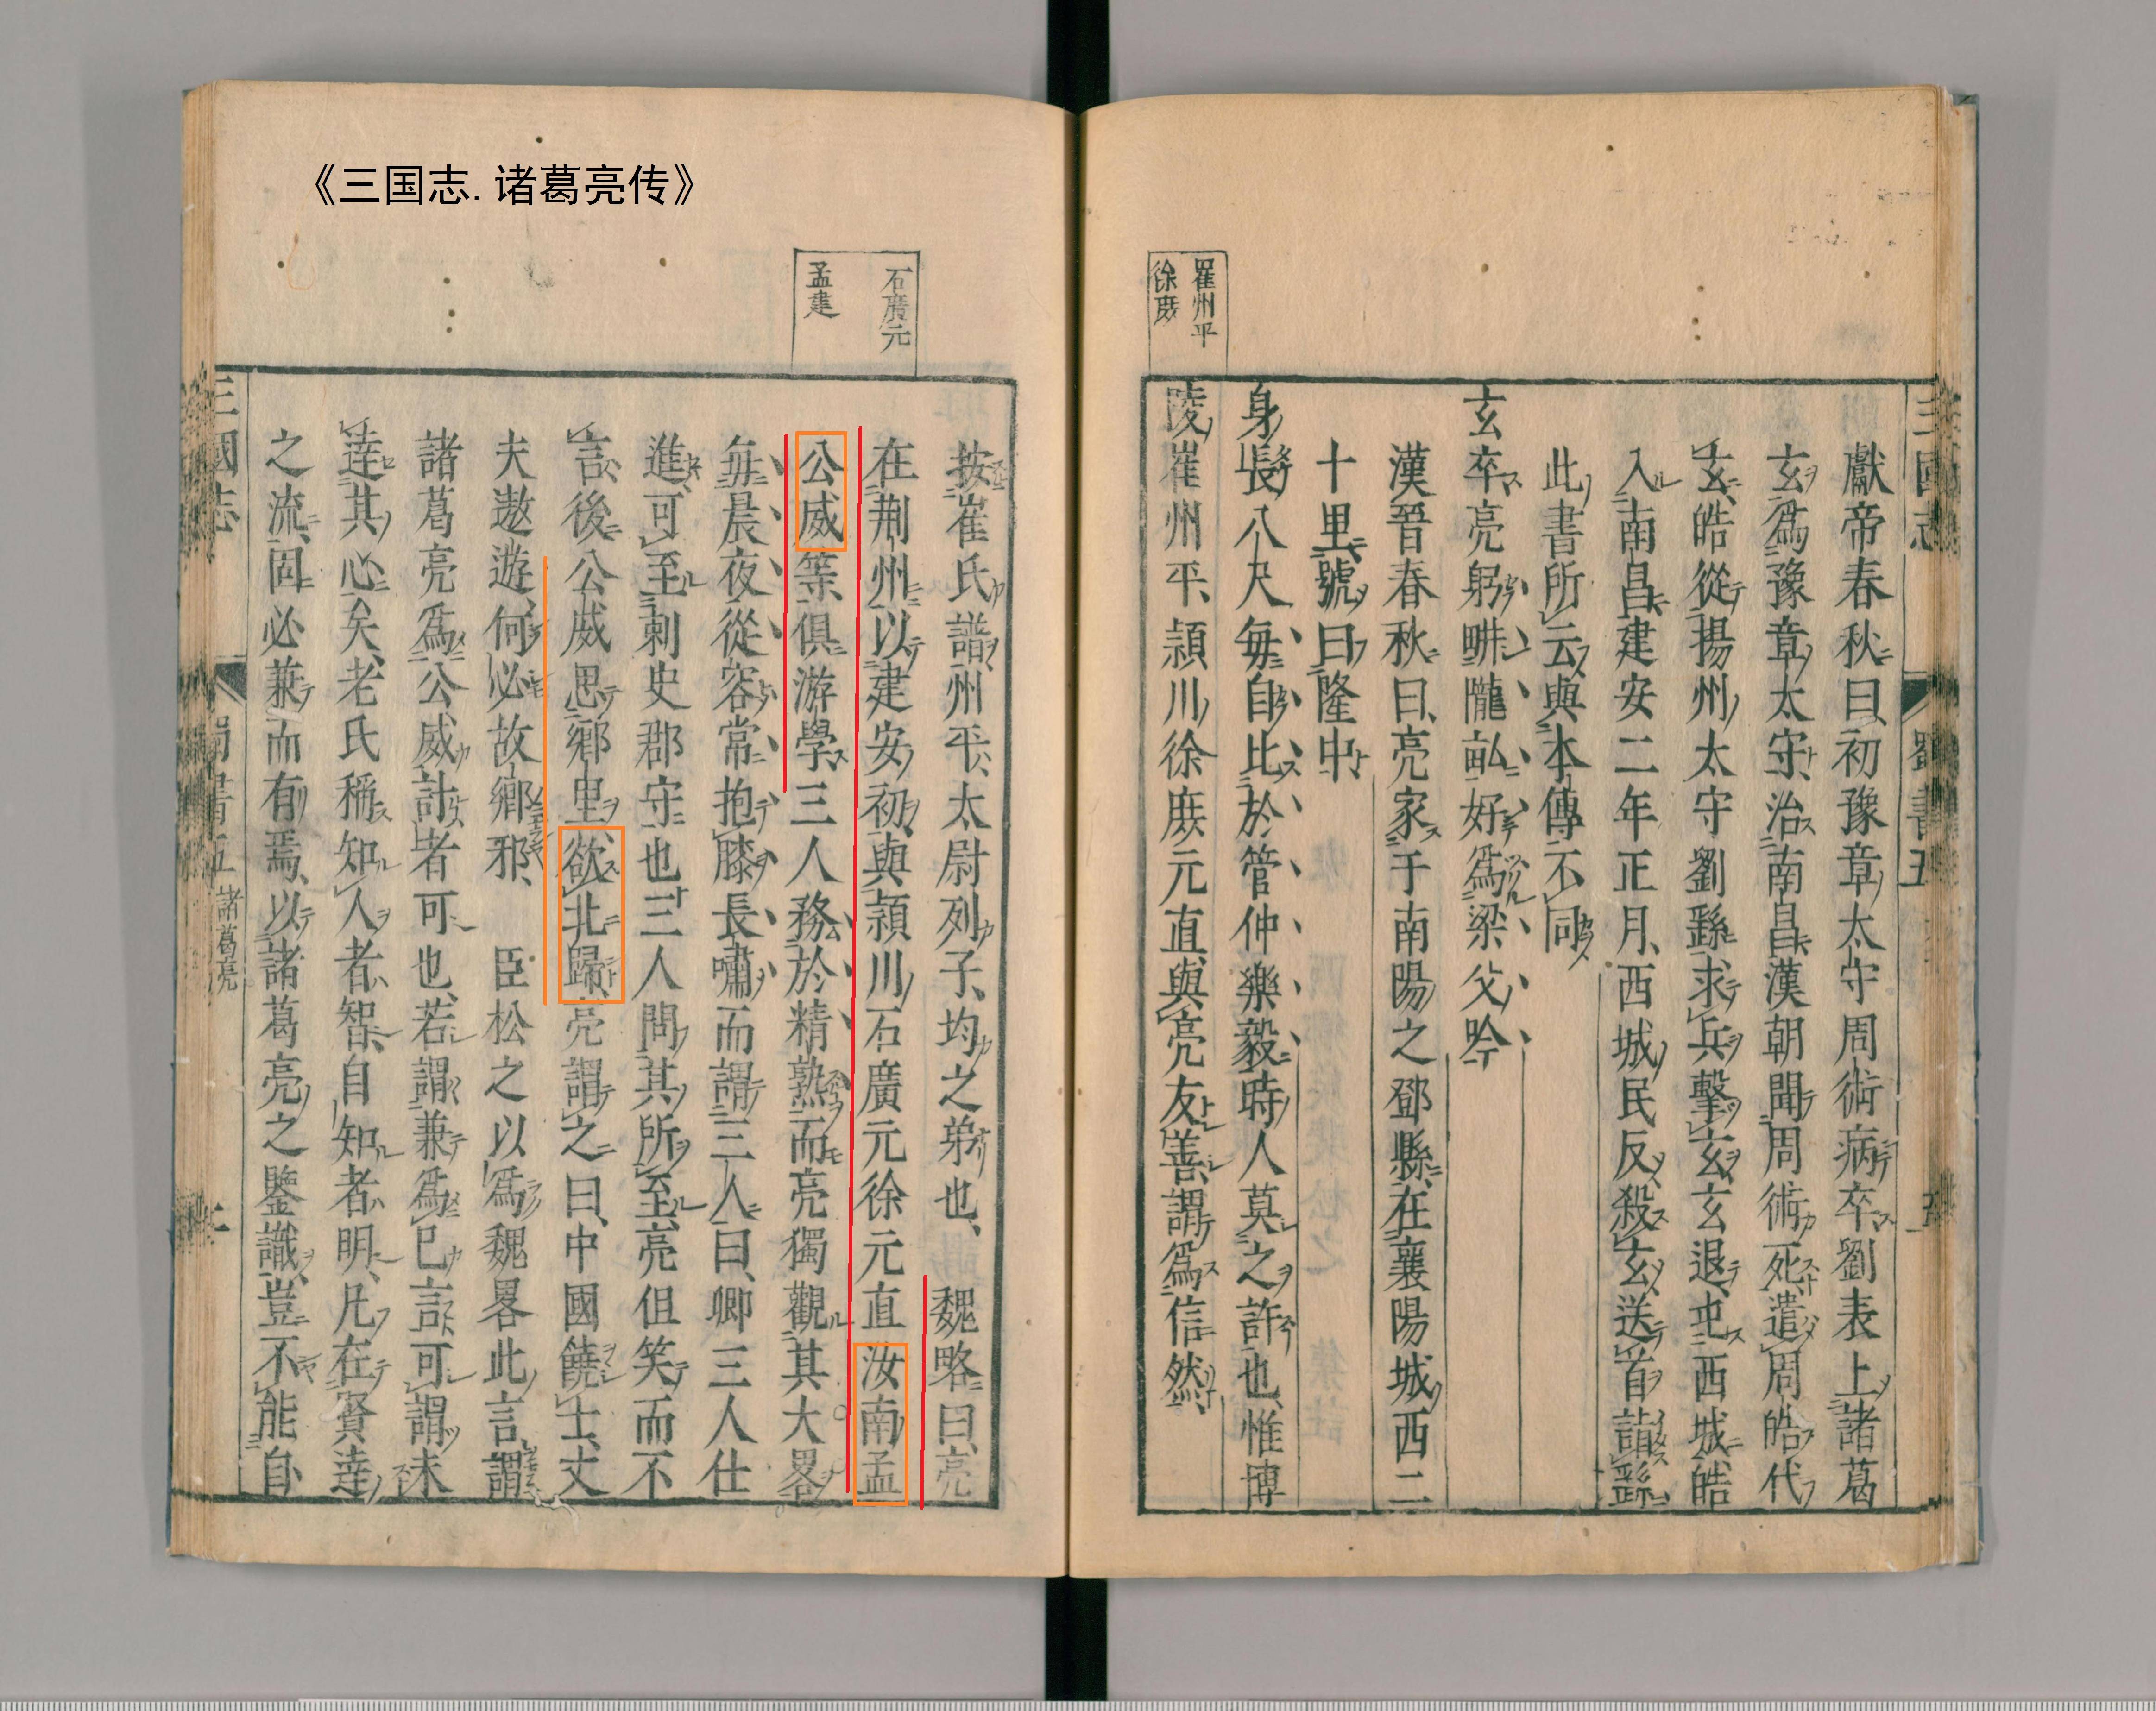 《三国志.诸葛亮传》
三國志
蜀書五
獻帝春秋曰初豫章太守周術病卒劉表上諸葛
玄爲豫章太守治南昌漢朝聞周術死遣周皓代
玄皓從揚州太守劉繇求兵擊玄玄退屯西城皓
入南昌建安二年正月西城民反殺玄送首詣繇
此書所云與本傳不同
玄卒亮躬畊隴畝好爲梁父吟
漢晉春秋曰亮家于南陽之鄧縣在襄陽城西二
十里號曰隆中
身長八尺每自比於管仲樂毅時人莫之許也惟博
陵崔州平潁川徐庶元直與亮友善謂爲信然
崔州平
徐庶
石廣元
孟建
按崔氏譜州平太尉列子均之弟也 魏略曰亮
在荆州以建安初與潁川石廣元徐元直汝南孟
公威等俱游學三人務於精熟而亮獨觀其大畧
每晨夜從容常抱膝長嘯而謂三人曰卿三人仕
進可至刺史郡守也三人問其所至亮但笑而不
言後公威思鄉里欲北歸亮謂之曰中國饒士大
夫遨遊何必故鄉邪 臣松之以爲魏畧此言謂
諸葛亮爲公威計者可也若謂兼爲已言可謂未
達其心矣老氏稱知人者智自知者明凡在賢達
之流固必兼而有焉以諸葛亮之鑒識豈不能自
三國志
蜀書五 諸葛亮